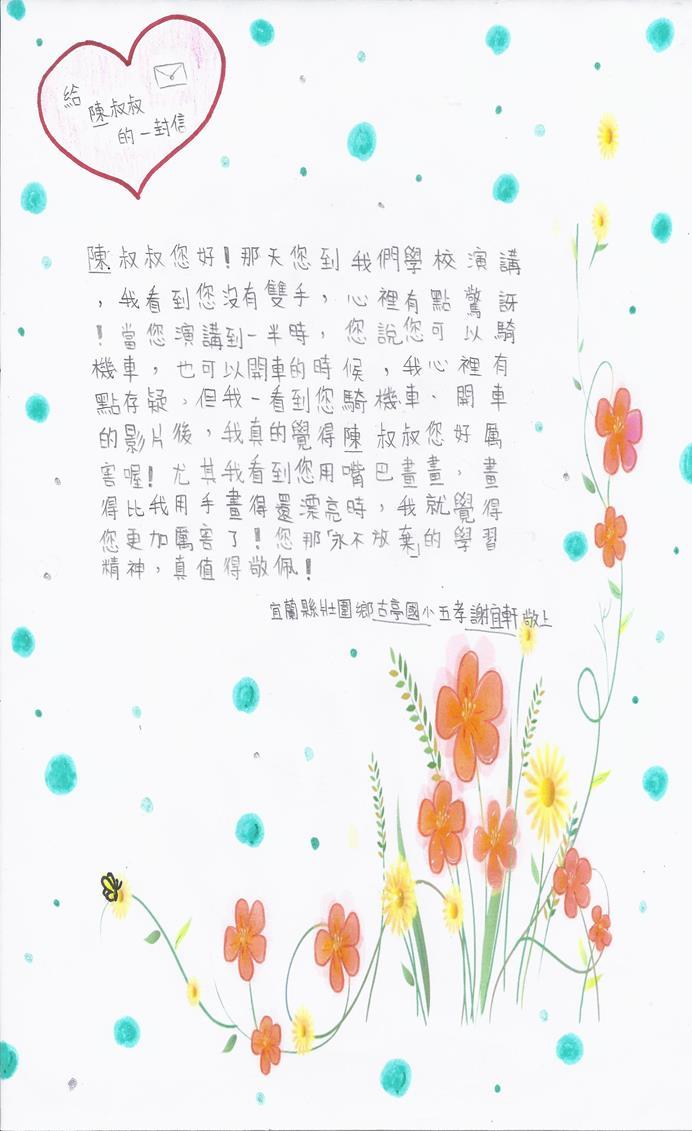 給
陳叔叔
的一封信
陳叔叔您好!那天您到我們學校演講
,我看到您沒有雙手,心裡有點驚訝
!當您演講到一半時,您說您可以騎
機車,也可以開車的時候,我心裡有
點存疑,但我一看到您騎機車、開車
的影片後,我真的覺得陳叔叔您好厲
害喔!尤其我看到您用嘴巴畫畫,畫
得比我用手畫得還漂亮時,我就覺得
您更加厲害了!您那「永不放棄」的學習
精神,真值得敬佩!
宜蘭縣壯圍鄉古亭國小五孝謝宜軒敬上